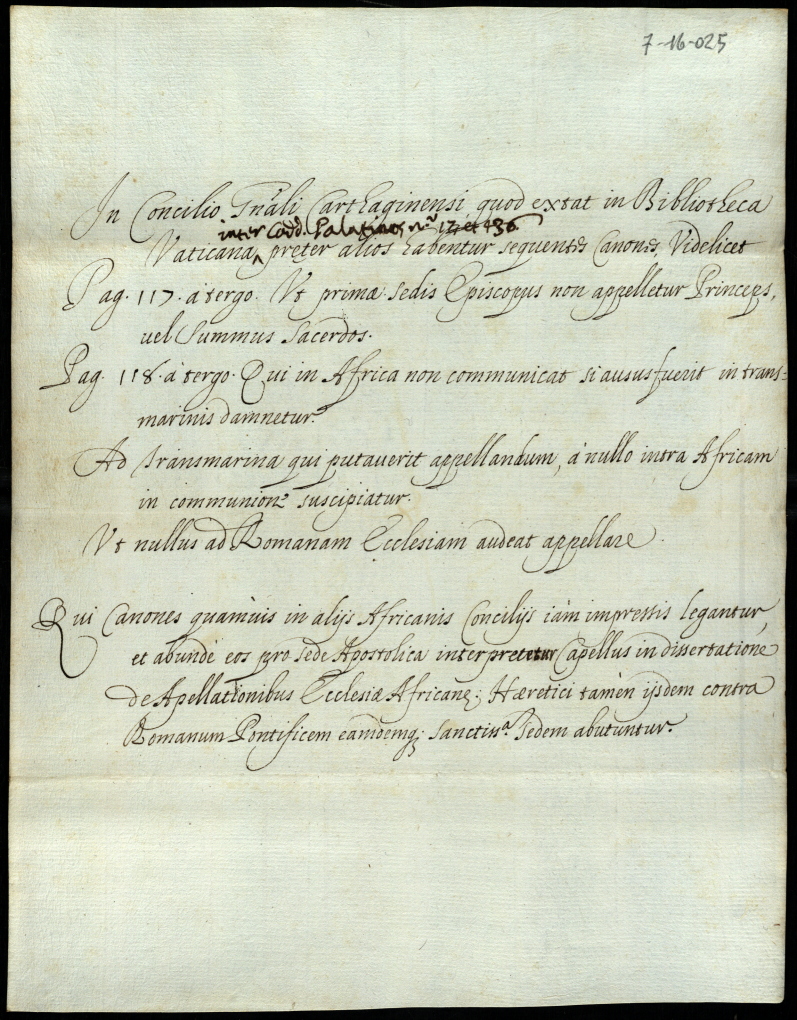 7-16-025
In Concilio Gn̄ali Carthaginensi quod extat in Bibliotheca
inter Codd. Palatinos n.º
Vaticana, preter alios habentur sequentes Canones, Videlicet
Pag. 117. à tergo. Ut primæ sedis Episcopus non appelletur Princeps,
vel Summus Sacerdos.
Pag. 118. à tergo. Qui in Africa non communicat si aususfuerit in trans=
marinis damnetur.
Ad transmarina qui putaverit appellandum, à nullo intra Africam
in communionē suscipiatur.
Ut nullus ad Romanam Ecclesiam audeat appellare.
Qui Canones quamuis in alijs Africanis Concilijs iàm impressis legantur,
et abundè eos pro sede Apostolica interpretetur Capellus in dissertatione
de Apellationibus Ecclesiæ Africanę; Hæretici tamèn ijsdem contra
Romanum Pontificem eamdemq; sanctiss.ª Sedem abutuntur.